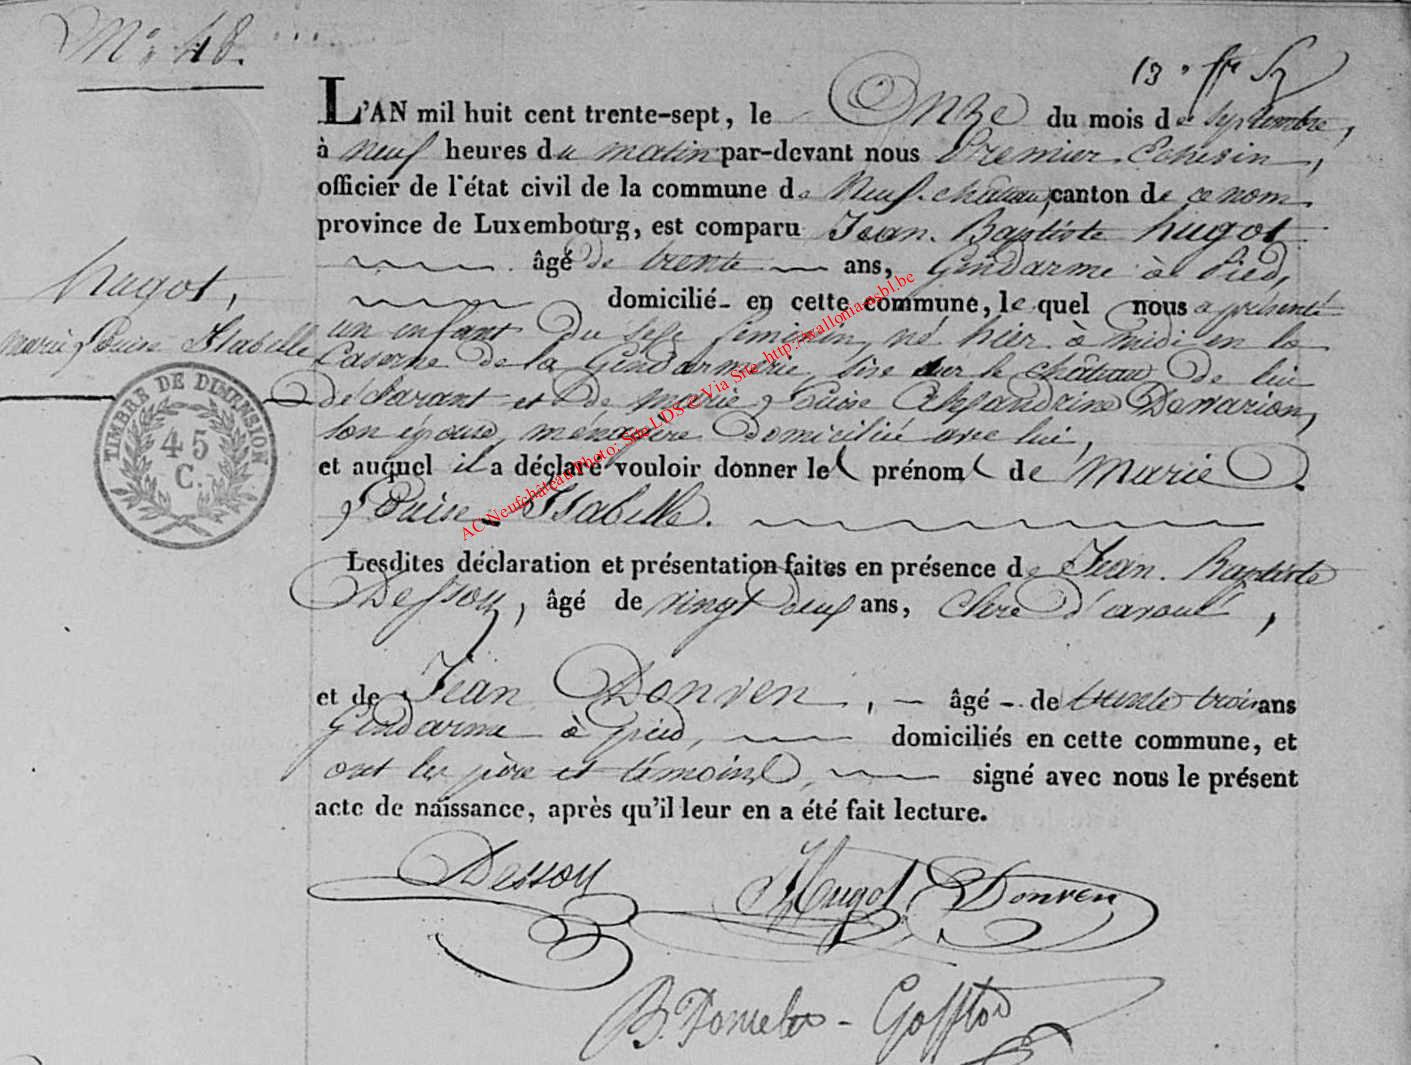 N.º 48.
L'AN mil huit cent trente-sept, le Onze du mois de septembre,
à neuf heures du matin par-devant nous Premier Echevin,
officier de l'état civil de la commune de Neufchâteau, canton de ce nom
province de Luxembourg, est comparu Jean-Baptiste hugot
âgé de trente ans, Gendarme à Pied,
domicilié en cette commune, le quel nous a présenté
un enfant du sexe féminin, né hier à midi en la
Caserne de la Gendarmerie, sise sur le château de lui
déclarant et de marie Louise Alexandrine Demarion,
son épouse, ménagère domiciliée avec lui,
et auquel il a déclaré vouloir donner les prénoms de Marie
Louise Isabelle.
Lesdites déclaration et présentation faites en présence de Jean-Baptiste
Dessoy, âgé de vingt neuf ans, Clerc d'avoué,
et de Jean Donven, âgé de trente trois ans
Gendarme à pied, domiciliés en cette commune, et
ont les père et témoins, signé avec nous le présent
acte de naissance, après qu'il leur en a été fait lecture.
hugot,
marie Louise Isabelle
TIMBRE DE DIMENSION
45
C.
Dessoy Hugot Donven
AC Neufchâteau Photo: Site LDS © Via Site http://wallonia-asbl.be